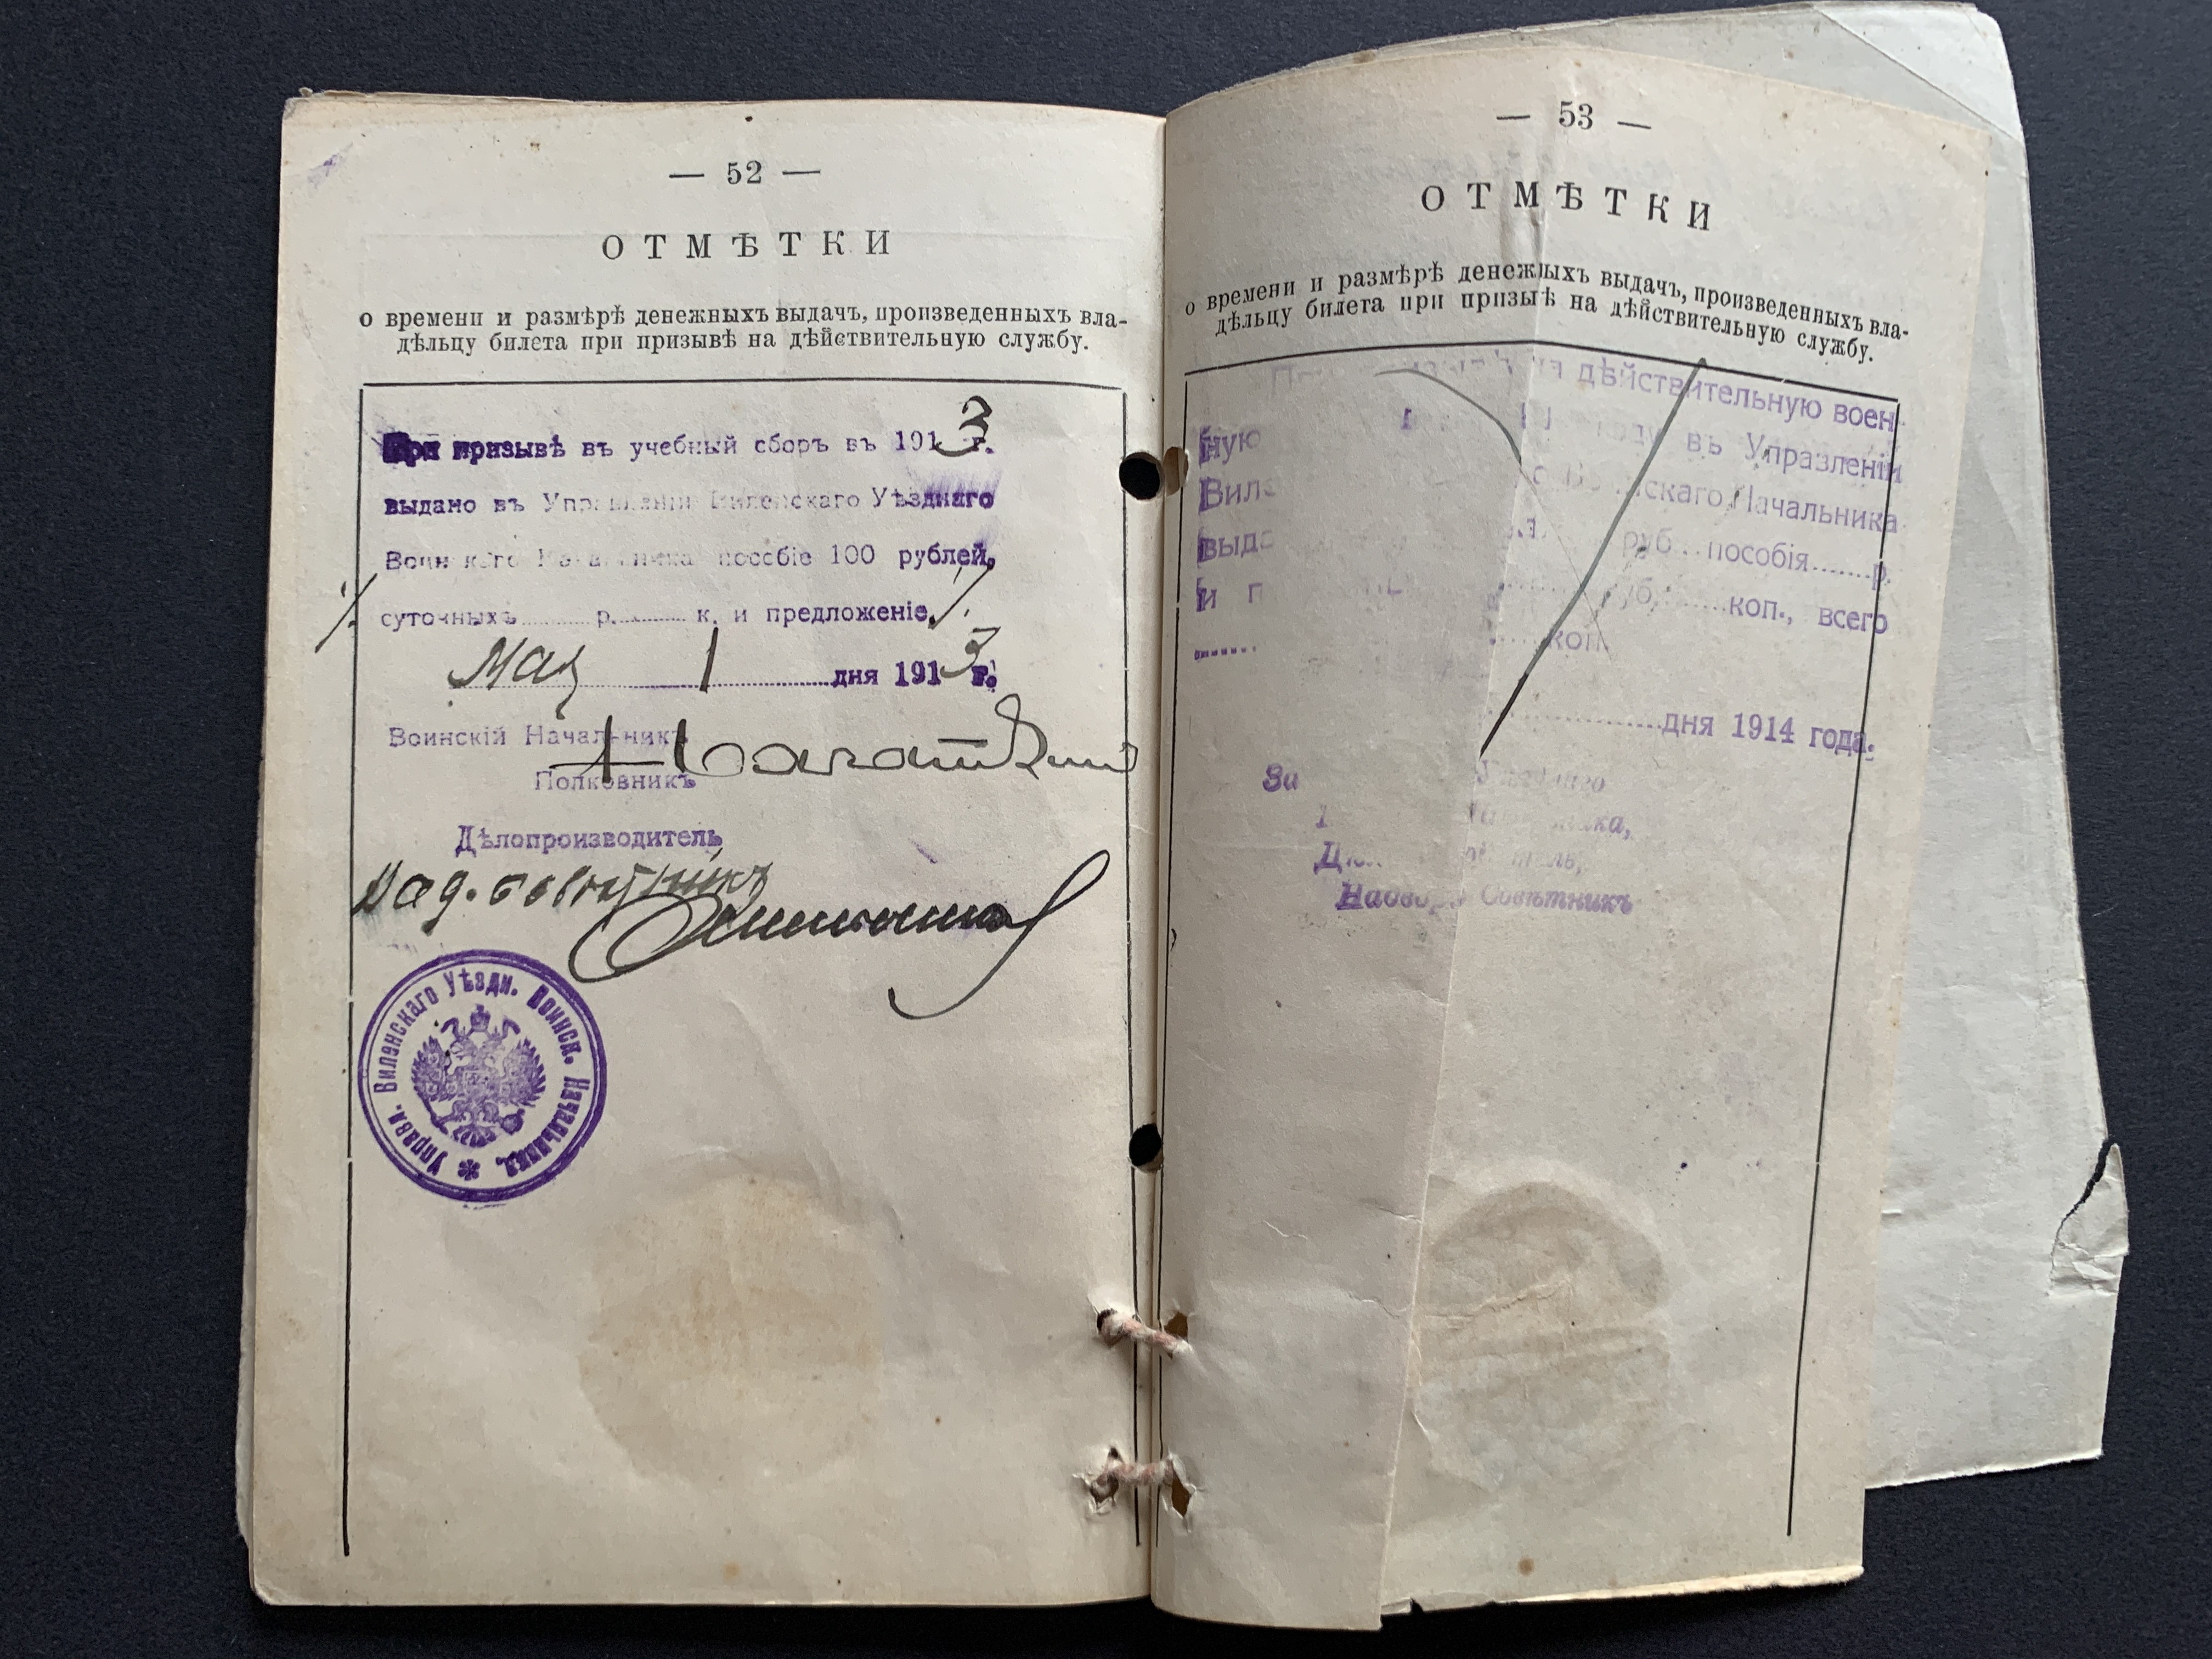 — 52 —
ОТМѢТКИ
о времени и размѣрѣ денежныхъ выдачъ, произведенныхъ вла-
дѣльцу билета при призывѣ на дѣйствительную службу.
При призывѣ въ учебный сборъ въ 1913 г.
выдано въ Управленіи Виленскаго Уѣзднаго
Воинскаго Начальника пособіе 100 рублей,
суточныхъ р. к. и предложеніе
Мая 1 дня 1913 г.
Воинскій Начальникъ
Полковникъ
Дѣлопроизводитель
Над. советникъ
Управл. Виленскаго Уѣздн. Воинск. Начальника.
— 53 —
ОТМѢТКИ
о времени и размѣрѣ денежныхъ выдачъ, произведенныхъ вла-
дѣльцу билета при призывѣ на дѣйствительную службу.
дѣйствительную воен-
ную году въ Управленіи
Начальника
руб. пособія р.
и коп., всего
коп.
дня 1914 года.
За
Совѣтникъ